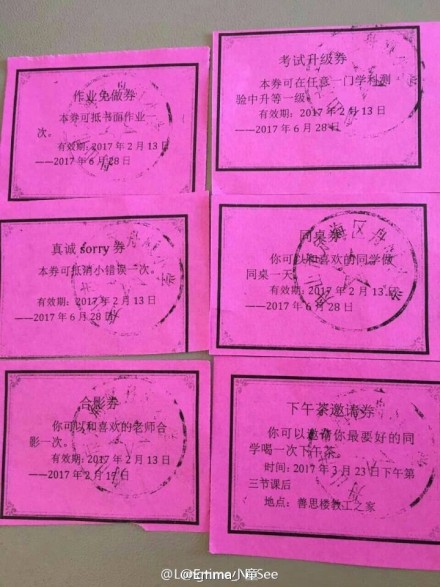 作业免做券
本券可抵书面作业一
次。
有效期:2017年2月13日
——2017年6月28日
考试升级券
本券可在任意一门学科测
验中升等一级。
有效期:2017年2月13日
——2017年6月28日
真诚 sorry 券
本券可抵销小错误一次。
有效期:2017年2月13日
——2017年6月28日
同桌券
你可以和喜欢的同学做
同桌一天。
有效期:2017年2月13日
——2017年6月28日
合影券
你可以和喜欢的老师合
影一次。
有效期:2017年2月13日
——2017年2月17日
下午茶邀请券
你可以邀请你最要好的同
学喝一次下午茶。
时间:2017年3月23日下午第
三节课后
地点:善思楼教工之家